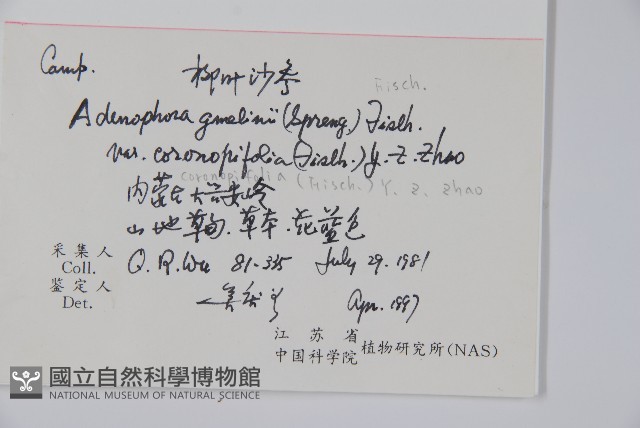 Camp. 柳叶沙参
Fisch.
Adenophora gmelinii (Spreng.) Fisch.
var. coronopifolia (Fisch.) Y. Z. Zhao
coronopifolia (Fisch.) Y. Z. Zhao
内蒙古大兴安岭
山地草甸.草本.花蓝色
采集人
Coll. Q. R. Wu 81-335 July 29. 1981
鉴定人
Det. Apr. 1997
江苏省
中国科学院 植物研究所(NAS)
國立自然科學博物館
NATIONAL MUSEUM OF NATURAL SCIENCE